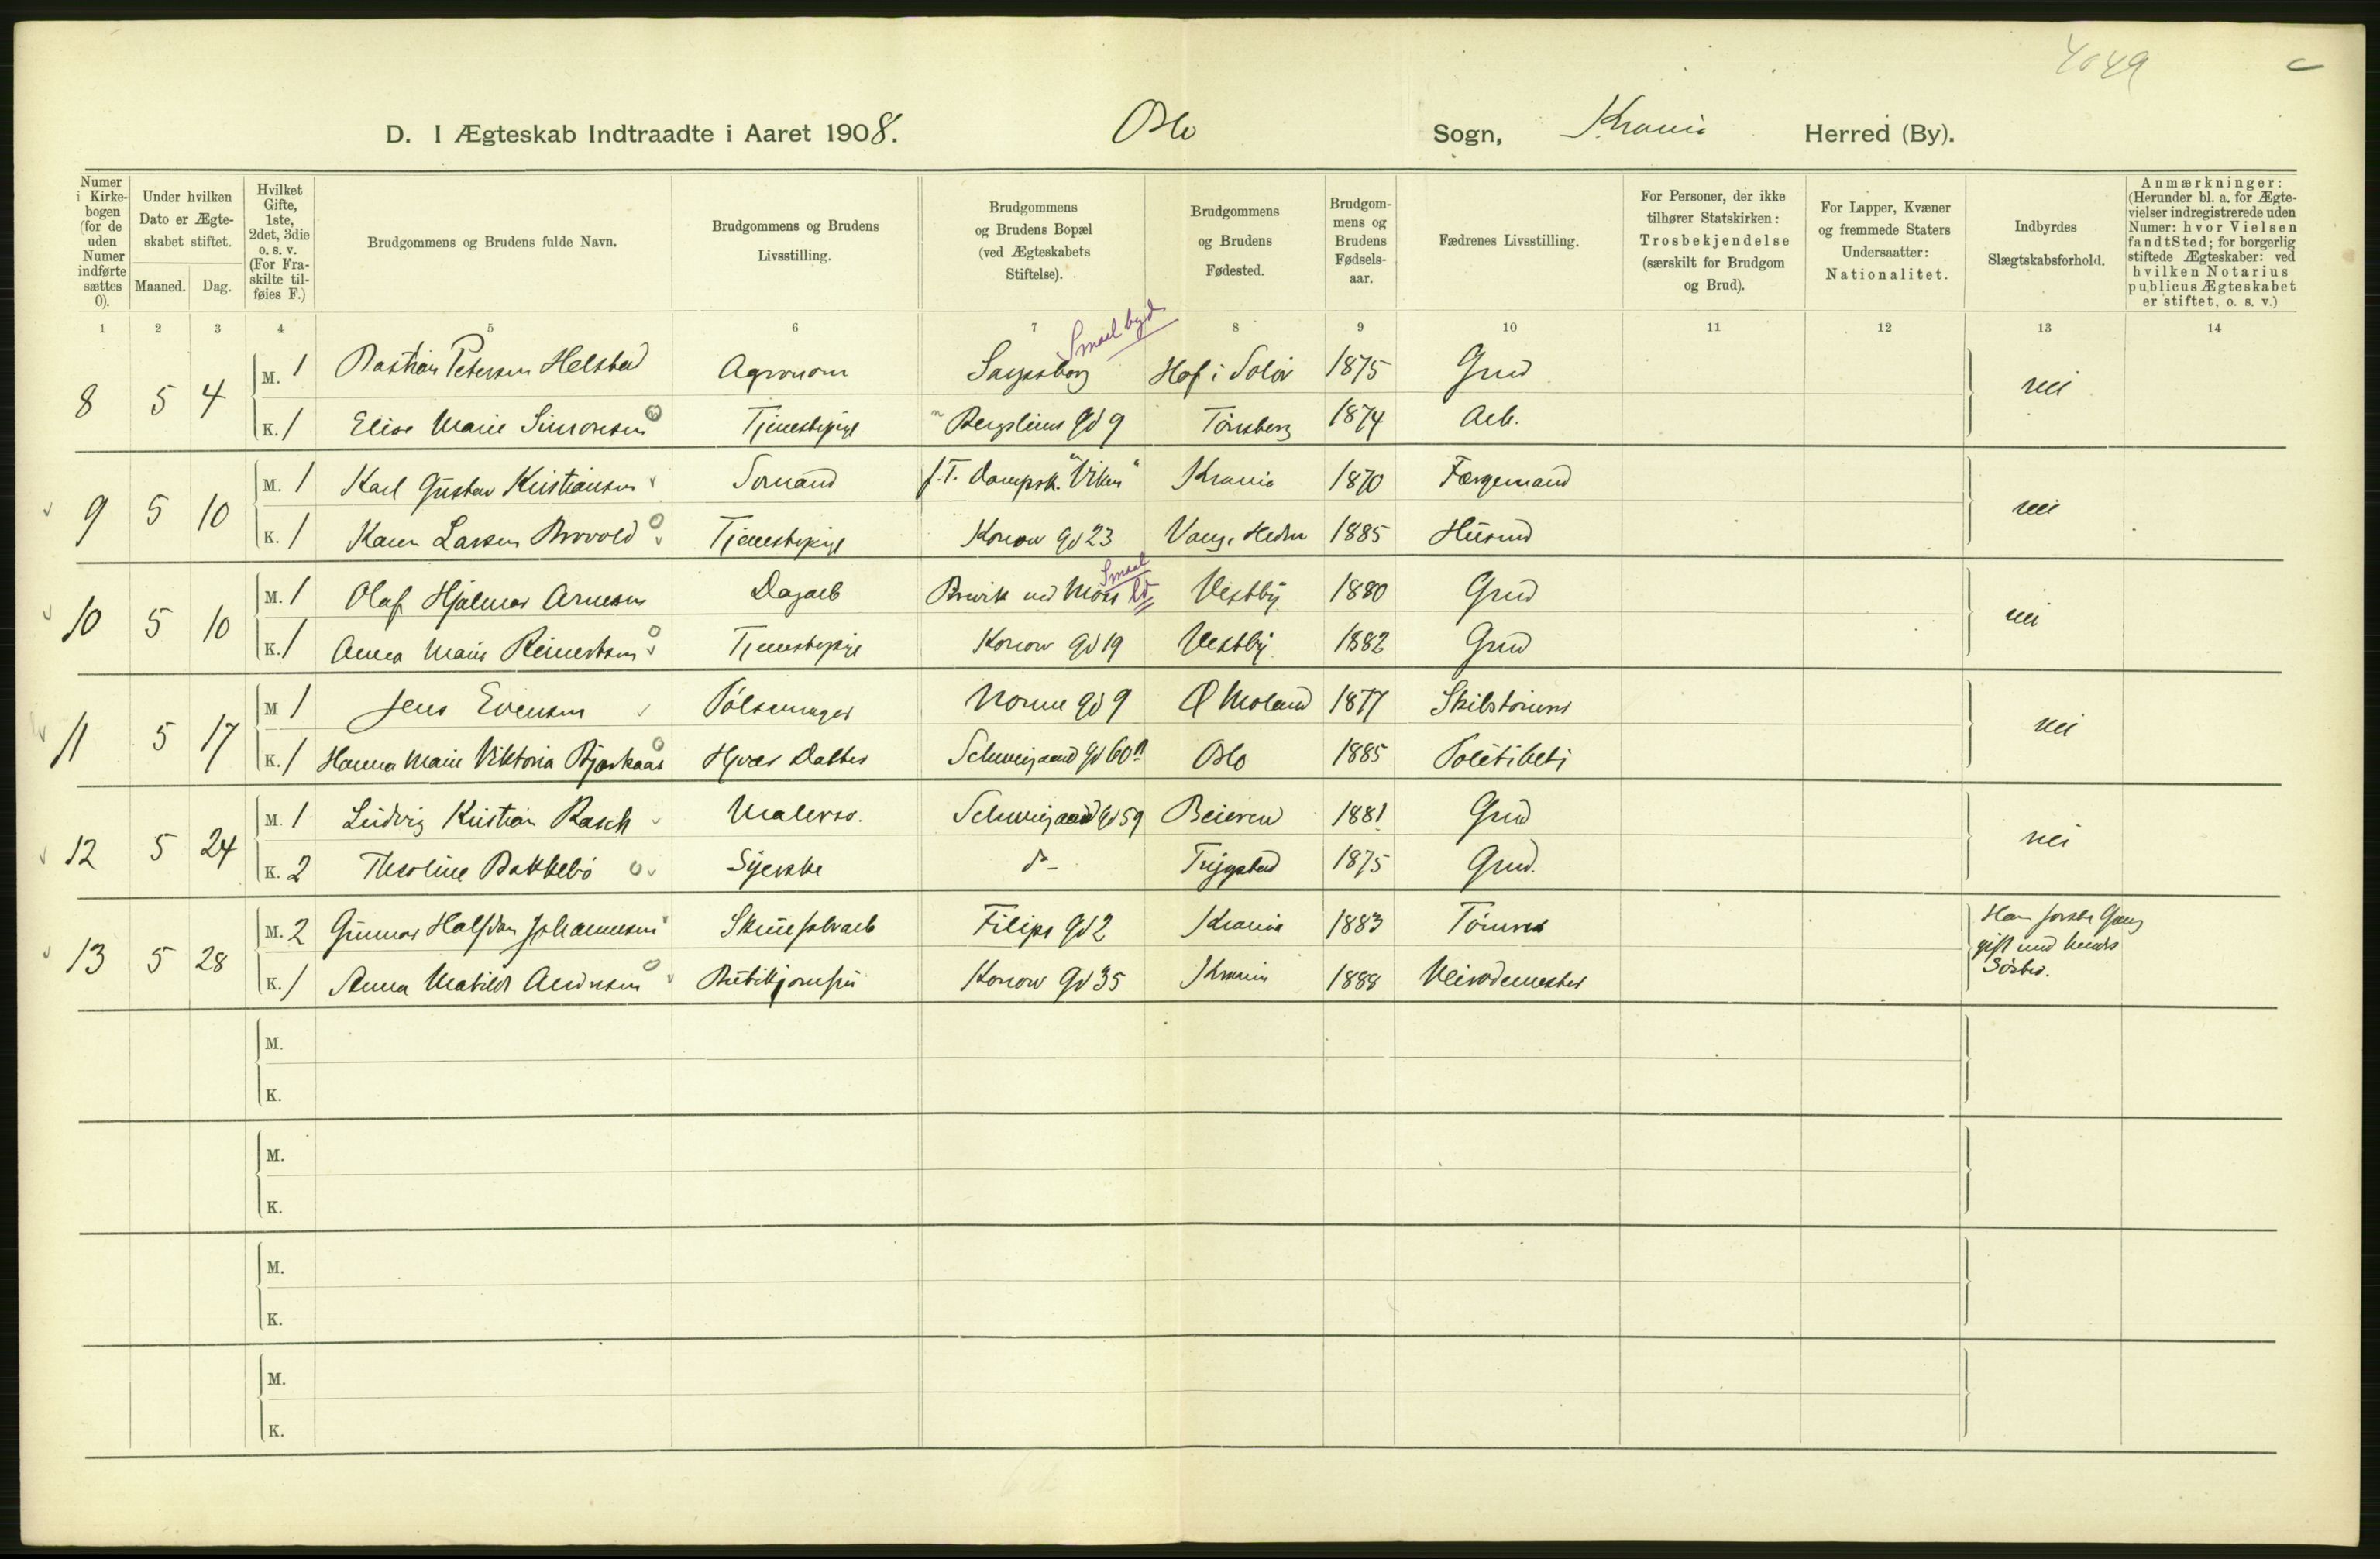 4049
D. I Ægteskab Indtraadte i Aaret 1908. Oslo Sogn, Krania Herred (By).
Numer i Kirkebogen (for de uden Numer indførte sættes 0).
Under hvilken Dato er Ægteskabet stiftet.
Maaned. Dag.
Hvilket Gifte, 1ste, 2det, 3die o. s. v. (For Fraskilte tilføies F.)
Brudgommens og Brudens fulde Navn.
Brudgommens og Brudens Livsstilling.
Brudgommens og Brudens Bopæl (ved Ægteskabets Stiftelse).
Brudgommens og Brudens Fødested.
Brudgommens og Brudens Fødselsaar.
Fædrenes Livsstilling.
For Personer, der ikke tilhører Statskirken: Trosbekjendelse (særskilt for Brudgom og Brud).
For Lapper, Kvæner og fremmede Staters Undersaatter: Nationalitet.
Indbyrdes Slægtskabsforhold.
Anmærkninger: (Herunder bl. a. for Ægtevielser indregistrerede uden Numer: hvor Vielsen fandt Sted; for borgerlig stiftede Ægteskaber: ved hvilken Notarius publicus Ægteskabet er stiftet, o. s. v.)
1 2 3 4 5 6 7 8 9 10 11 12 13 14
Smaal byd
8 5 4 M. 1 Bastian Petersen Helstad Agronom Sarpsborg Hof i Solør 1875 Grud nei
K. 1 Elise Marie Simonsen Tjenestepige Bergliens Gd 9 Tönsberg 1874 Arb.
9 5 10 M. 1 Karl Gustav Kristiansen Sømand f.T. Dampsk. "Viken" Krania 1870 Færgemand nei
K. 1 Karen Larsen Brovold Tjenestepige Konow Gd 23 Vang, Hedm 1885 Husmd
Smaal
10 5 10 M. 1 Olaf Hjalmar Arnesen Dagarb Brevik ved Moss Vestby 1880 Grud nei
K. 1 Anna Marie Reinertsen Tjenestepige Konow Gd 19 Vestby 1882 Grud
11 5 17 M 1 Jens Evensen Pølsemager Norme Gd 9 Ø Moland 1877 Skibstømmr nei
K. 1 Hanna Marie Viktoria Bjerkaas Hjvær Datter Schweigaard Gd 60 B Oslo 1885 Politibetj
12 5 24 M. 1 Ludvig Kristian Rasch Malersv. Schweigaard Gd 59 Beieren 1881 Grud nei
K. 2 Theoline Bakkebø Syerske do - Trygstad 1875 Grud.
13 5 28 M. 2 Gunnar Halfdan Johannesen Skruefabrarb Filips Gd 2 Krania 1883 Tømmr Han første Gang
gift med hendes
Søster.
K. 1 Anna Matilde Andersen Butikjomfru Konow Gd 35 Krania 1888 Veivodemester
M.
K.
M.
K.
M.
K.
M.
K.